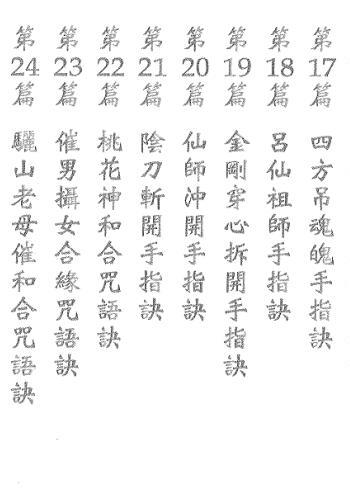 第17篇 四方吊魂魄手指訣
第18篇 呂仙祖師手指訣
第19篇 金剛穿心拆開手指訣
第20篇 仙師沖開手指訣
第21篇 陰刀斬開手指訣
第22篇 桃花神和合咒語訣
第23篇 催男攝女合緣咒語訣
第24篇 驪山老母催和合咒語訣